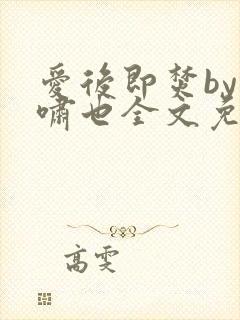 爱後即焚by
啸也全文免
高雯